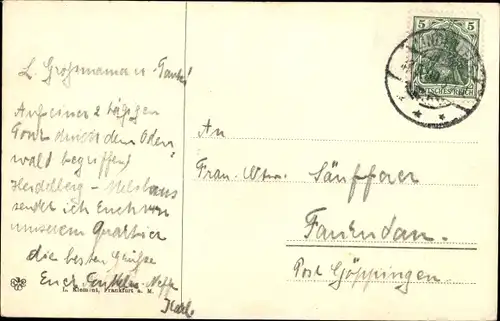 L. Grossmama u. Tante!
Auf einer 2 tägigen
Tour durch den Oden
wald begriffen,
Heidelberg –
sendet ich Euch von
unserem Quartier
die besten Grüsse
Euer Neffe
Karl.
L. Klement, Frankfurt a. M.
5 5
DEUTSCHES REICH
An
Frau Wtw.
Faurndau.
Post Göppingen.